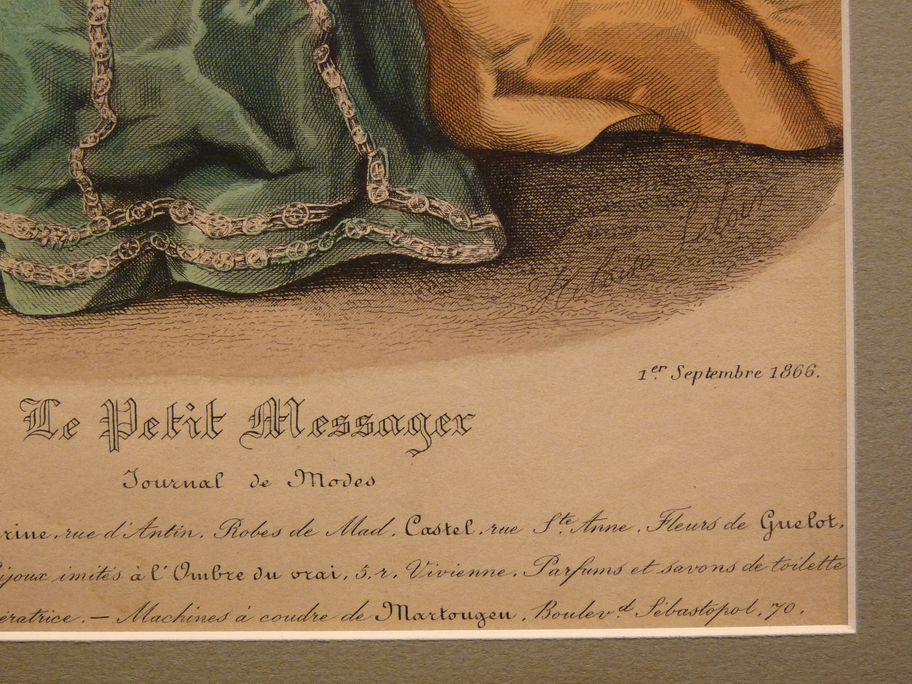 Héloïse Leloir
1er Septembre 1866.
Le Petit Messager
Journal de Modes
rine, rue d'Antin. Robes de Mad. Castel, rue Ste Anne. Fleurs de Guelot,
ijoux imités à l'Ombre du vrai, 5, r. Vivienne. Parfums et savons de toilette
ératrice. — Machines à coudre de Martougen, Boulevd Sébastopol, 70.